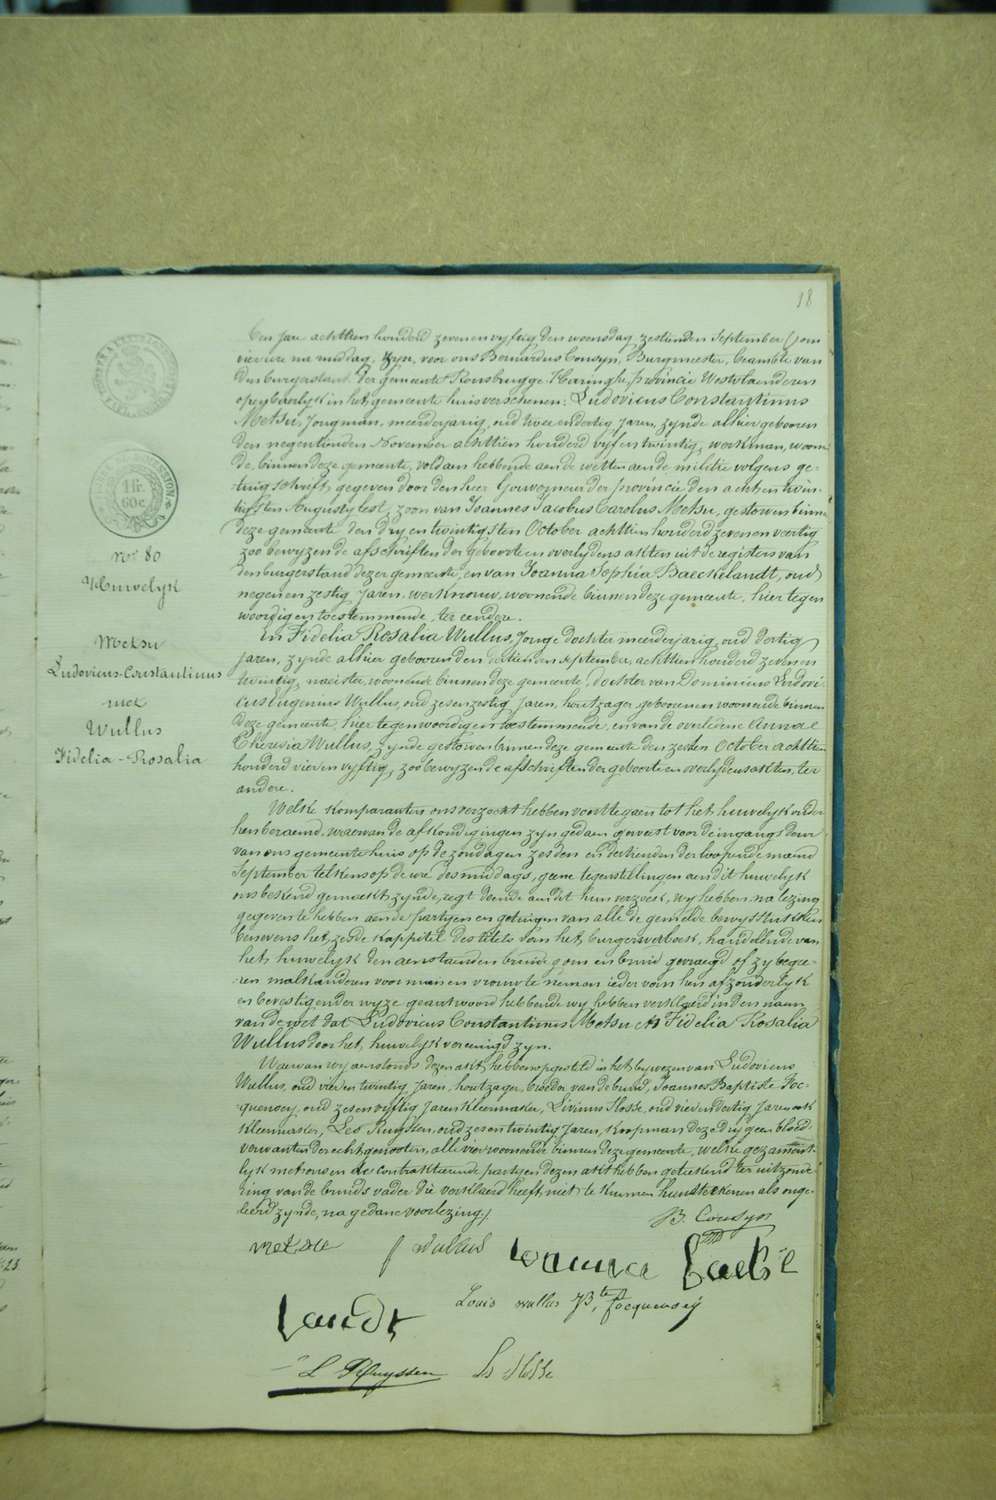 18
1 fr.
60 c.
No 80
Huwelyk
Metsu
Ludovicus-Constantinus
met
Wullus
Fidelia-Rosalia
Ten jare achttien honderd zevenenvyftig den woensdag zestienden September om
vier ure na middag, zyn, voor ons Bernardus Cousyn, Burgmeester, beambte van
den burgerstand der gemeente Rousbrugge-Haringhe, provincie Westvlaenderen
openbaerlyk in het gemeente huis verschenen: Ludovicus Constantinus
Metsu, Jongman, meerderjarig, oud twee endertig Jaren, zynde alhier gebooren
den negentienden November achttien honderd vyfentwintig, werkman, woonen
de binnen deze gemeente, voldaen hebbende aen de wetten aen de militie volgens ge-
tuigschrift gegeven door den heer Gouverneur der provincie den achtentwin-
tigsten Augusty lest, zoon van Joannes Jacobus Carolus Metsu, gestorven binnen
deze gemeente den dryentwintigsten October achttien honderd zevenenveertig
zoo bewyzen de afschriften der geboorte en overlydens akten uit de registers van
den burgerstand dezer gemeente, en van Joanna Sophia Baeckelandt, oud
negenenzestig Jaren, werkvrouw, woonende binnen deze gemeente, hier tegen
woordig en toestemmende, ter eendere.
En Fidelia Rosalia Wullus, Jonge dochter meerderjarig, oud dertig
jaren, zynde alhier gebooren den dertienden September, achttien honderd zevenen
twintig, naeister, woonende binnen deze gemeente, dochter van Dominicus Ludovi-
cus Eugenius Wullus, oud zesenzestig Jaren, houtzager, gebooren en woonende binnen
deze gemeente, hier tegenwoordig en toestemmende, en van de overledene Anna
Theresia Wullus, zynde gestorven binnen deze gemeente den zesten October achttien
honderd vierenvyftig, zoo bewyzen de afschriften der geboorte en overlydensakten, ter
andere.
Welke komparanten ons verzocht hebben voort te gaen tot het huwelyk onder
hen beraemd, waervan de afkondigingen zyn gedaen geweest voor de ingangs deur
van ons gemeente huis op de zondagen zesden en dertienden der loopende maend
September telkens op de ure des middags, geene tegenstellingen aen dit huwelyk
ons bekend gemaekt zynde, regt doende aen dit hun verzoek, wy hebben na lezing
gegeven te hebben aen de partyen en getuigen van alle de gemelde bewysstukken
benevens het zesde kappittel des titels van het burgerwetboek, handelende van
het huwelyk den aenstaenden bruidegom en bruid gevraegd of zy begee-
ren malkanderen voor man en vrouw te nemen ieder van hen afzonderlyk
en bevestigender wyze geantwoord hebbende wy hebben verklaerd in den naam
van de wet dat Ludovicus Constantinus Metsu en Fidelia Rosalia
Wullus door het huwelyk vereenigd zyn.
Waervan wy aenstonds dezen akt hebben opgesteld in het bywezen van Ludovicus
Wullus, oud vierentwintig Jaren, houtzager, broeder van de bruid, Joannes Baptiste Joc-
quewey, oud zesenvyftig Jaren Kleermaker, Livinus Hosse, oud vierendertig Jaren ook
Kleermaker, Leo Ruyssen, oud zesentwintig Jaren, koopman deze dry geen bloed-
verwanten der echtgenooten, alle vier woonende binnen deze gemeente, welke gezament-
lyk met ons en de contrakteerende partyen dezen akt hebben geteekend ter uitzonde-
ring van de bruids vader die verklaerd heeft niet te kunnen handteekenen als onge-
leerd zynde, na gedane voorlezing.
B. Cousyn
metsu f wullus Joanna Baeke
Landt Louis wullus J Bte Jocquewey
L Ruyssen Ls Hosse